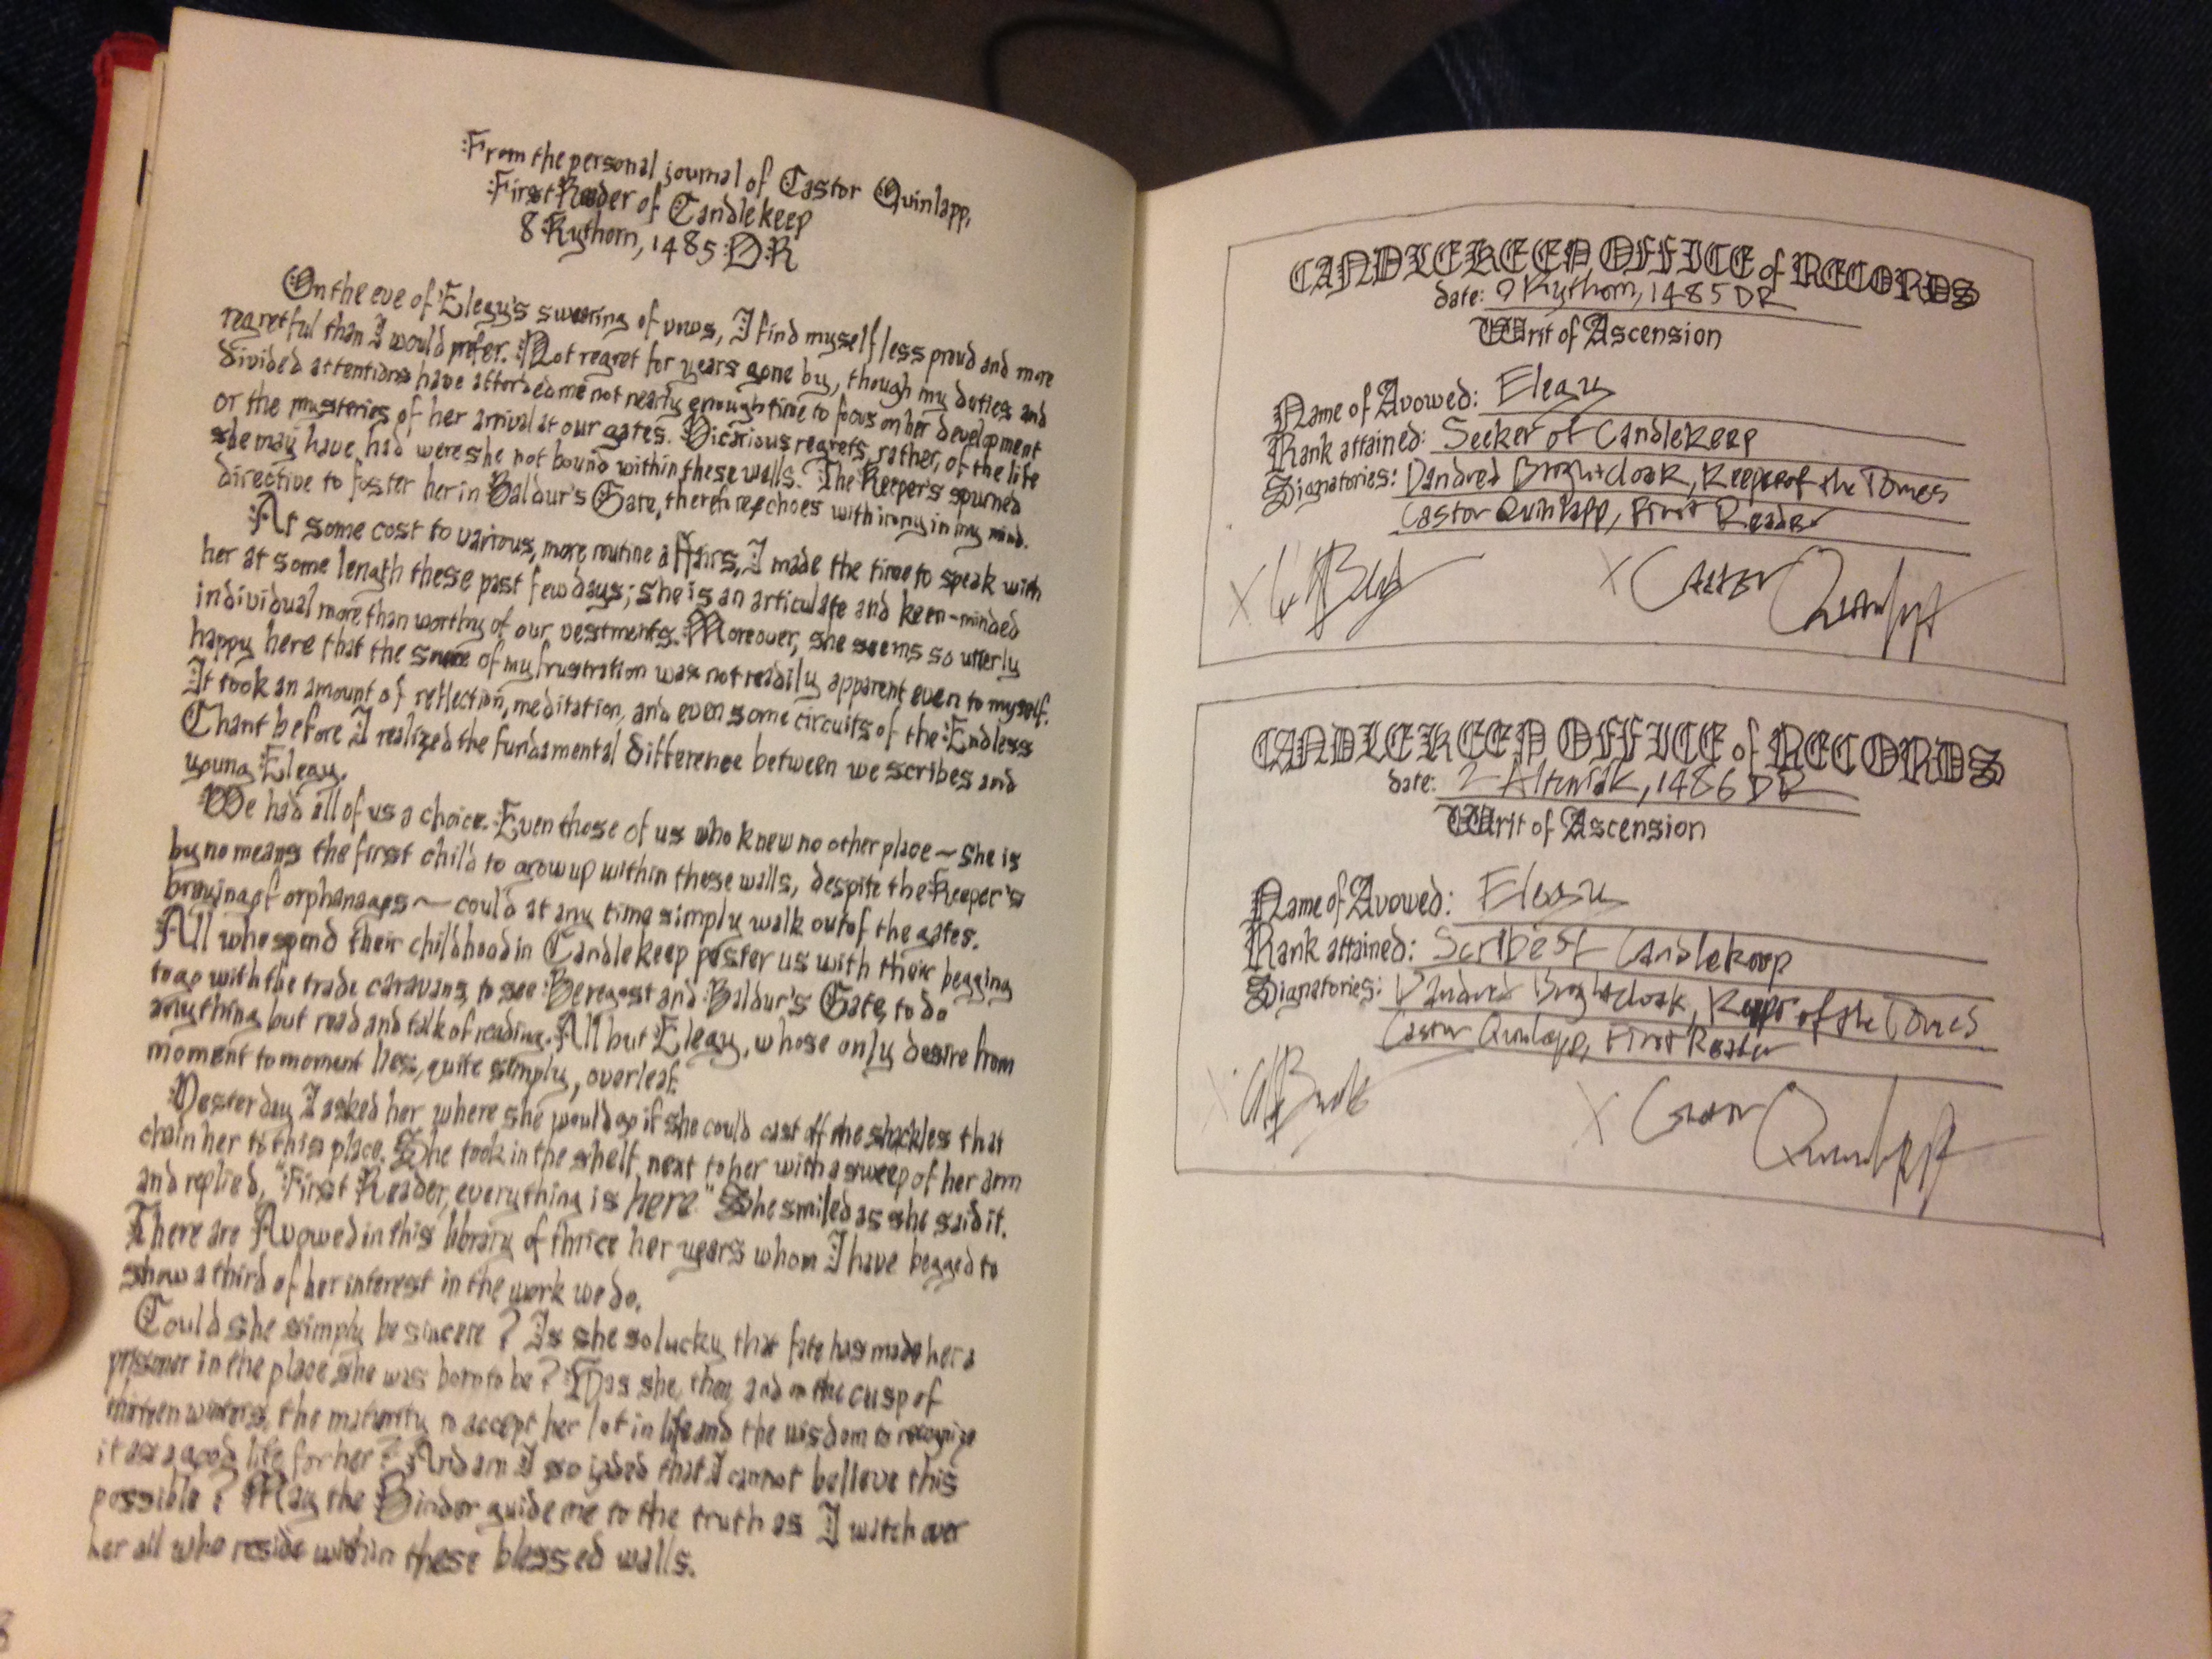 From the personal journal of Castor Quinlapp,
First Reader of Candlekeep
8 Kythorn, 1485 DR
On the eve of Elegy's swearing of vows, I find myself less proud and more
regretful than I would prefer. Not regret for years gone by, though my duties and
divided attentions have afforded me not nearly enough time to focus on her development
or the mysteries of her arrival at our gates. Vicarious regrets, rather, of the life
she may have had were she not bound within these walls. The Keeper's spurned
directive to foster her in Baldur's Gate, therefore echoes with irony in my mind.
At some cost to various, more routine affairs, I made the time to speak with
her at some length these past few days; she is an articulate and keen-minded
individual more than worthy of our vestments. Moreover, she seems so utterly
happy here that the source of my frustration was not readily apparent even to myself.
It took an amount of reflection, meditation, and even some circuits of the Endless
Chant before I realized the fundamental difference between we scribes and
young Elegy.
We had all of us a choice. Even those of us who knew no other place ~ she is
by no means the first child to grow up within these walls, despite the Keeper's
of orphanages ~ could at any time simply walk out of the gates.
All who spend their childhood in Candlekeep pester us with their begging
to go with the trade caravans, to see Beregost and Baldur's Gate, to do
anything but read and talk of reading. All but Elegy, whose only desire from
moment to moment lies, quite simply, overleaf.
Yesterday I asked her where she would go if she could cast off the shackles that
chain her to this place. She took in the shelf next to her with a sweep of her arm
and replied, "First Reader, everything is here." She smiled as she said it.
There are Avowed in this library of thrice her years whom I have begged to
show a third of her interest in the work we do.
Could she simply be sincere? Is she so lucky that fate has made her a
prisoner in the place she was born to be? Has she, then, and on the cusp of
thirteen winters, the maturity to accept her lot in life and the wisdom to recognize
it as a good life for her? And am I so jaded that I cannot believe this
possible? May the Binder guide me to the truth as I watch over
her all who reside within these blessed walls.
CANDLEKEEP OFFICE of RECORDS
date: 9 Kythorn, 1485 DR
Writ of Ascension
Name of Avowed: Elegy
Rank attained: Seeker of Candlekeep
Signatories: Dandred Brightcloak, Keeper of the Tomes
Castor Quinlapp, First Reader
X X Castor Quinlapp
CANDLEKEEP OFFICE of RECORDS
date: 2 Alturiak, 1486 DR
Writ of Ascension
Name of Avowed: Elegy
Rank attained: Scribe of Candlekeep
Signatories: Dandred Brightcloak, Keeper of the Tomes
Castor Quinlapp, First Reader
X X Castor Quinlapp